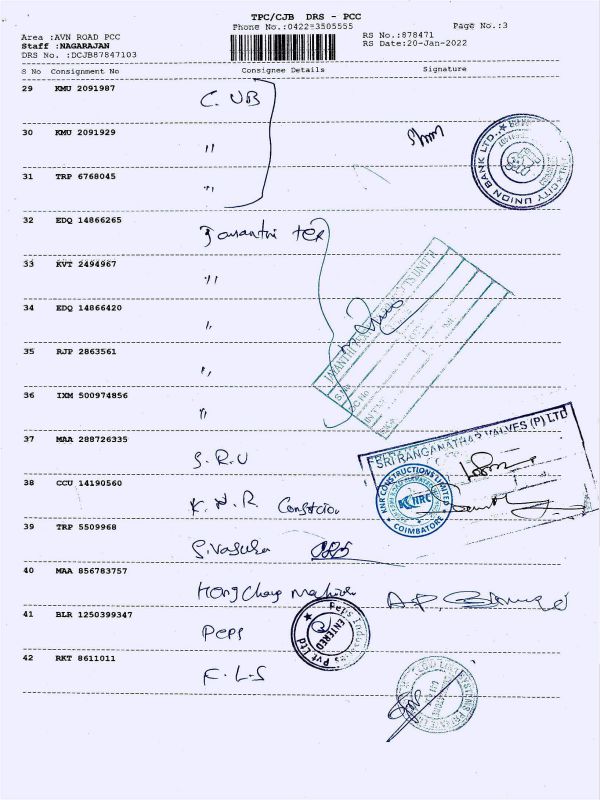 TPC/CJB DRS - PCC
Phone No.:0422-3505555
Page No.:3
Area :AVN ROAD PCC
RS No.:878471
Staff :NAGARAJAN
RS Date:20-Jan-2022
DRS No. :DCJB87847103
S No Consignment No Consignee Details Signature
29 KMU 2091987 C. UB
30 KMU 2091929 "
31 TRP 6768045 "
CITY UNION BANK LTD.,
32 EDQ 14866265 tex
33 KVT 2494967 "
34 EDQ 14866420 "
35 RJP 2863561 "
36 IXM 500974856 "
JAYANTHI UNIT
S.No
37 MAA 288726335 S. R. V
SRI RANGANATHAR VALVES (P) LTD
38 CCU 14190560 K. N. R
KNR CONSTRUCTIONS LIMITED
KNRC
COIMBATORE
39 TRP 5509968
40 MAA 856783757 Hong Chang
41 BLR 1250399347 Peps
Peps Industries Pvt Ltd
ENTERED
42 RKT 8611011 F. L. S